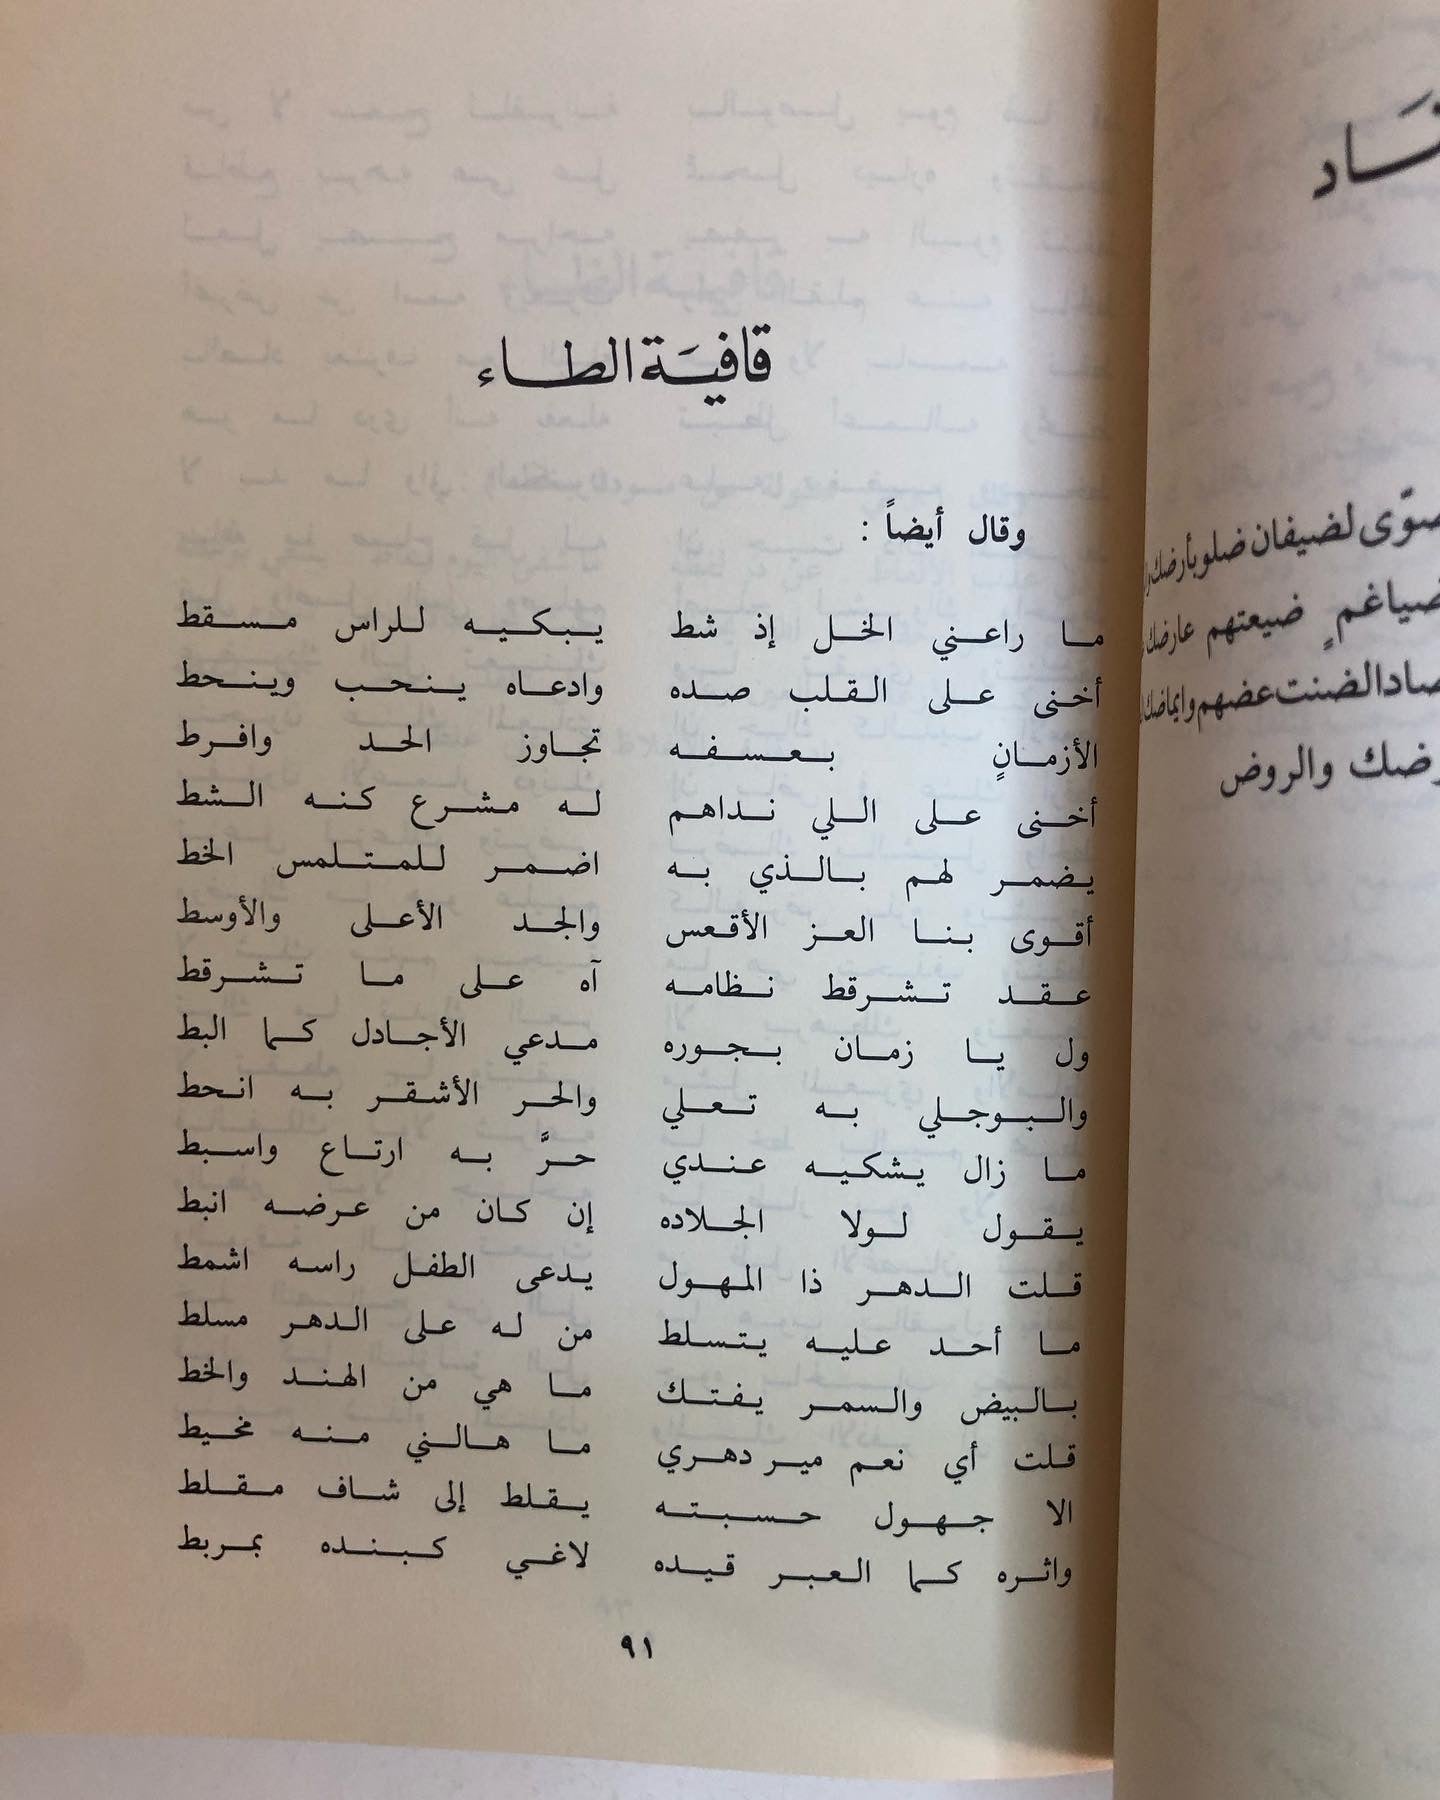 قافيَة الطاء
وقال أيضاً :
ما راعني الخل إذ شط يبكيه للراس مسقط
أخنى على القلب صده وادعاه ينحب وينحط
الأزمانٍ بعسفه تجاوز الحد وافرط
أخنى على اللي نداهم له مشرع كنه الشط
يضمر لهم بالذي به اضمر للمتلمس الخط
أقوى بنا العز الأقعس والجد الأعلى والأوسط
عقد تشرقط نظامه آه على ما تشرقط
ول يا زمان بجوره مدعي الأجادل كما البط
والبوجلي به تعلي والحر الأشقر به انحط
ما زال يشكيه عندي حرَّ به ارتاع واسبط
يقول لولا الجلاده إن كان من عرضه انبط
قلت الدهر ذا المهول يدعى الطفل راسه اشمط
ما أحد عليه يتسلط من له على الدهر مسلط
بالبيض والسمر يفتك ما هي من الهند والخط
قلت أي نعم مير دهري ما هالني منه مخيط
الا جهول حسبته يقلط إلى شاف مقلط
واثره كما العبر قيده لاغي كبنده بمربط
٩١
صوّى لضيفان ضلو بأرضك
ضياغمٍ ضيعتهم عارضك
صاد الضنت عضهم وايماضك
رضك والروض